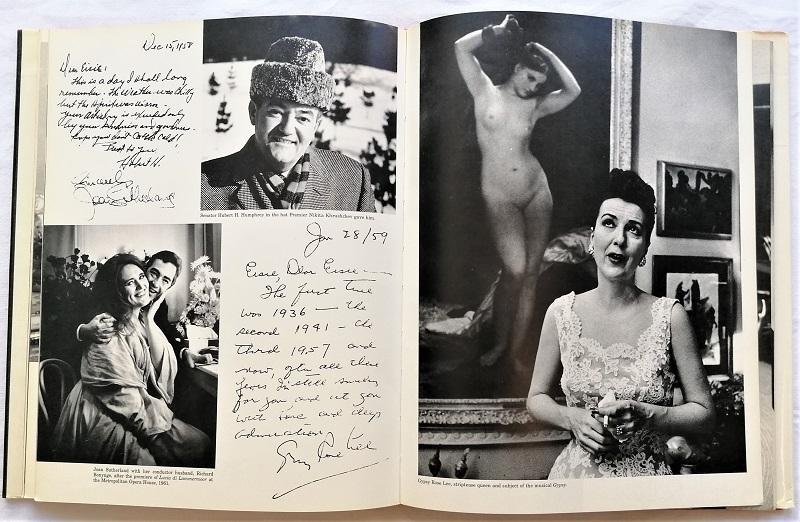 Dec 15, 1958
Dear Eisie:
This is a day I shall long
remember. The weather was chilly
but the
Your artistry is exceeded only
by your
Hubert H.
Sincerely
Joan Sutherland
Senator Hubert H. Humphrey in the hat Premier Nikita Khrushchev gave him.
Joan Sutherland with her conductor husband, Richard
Bonynge, after the premiere of Lucia di Lammermoor at
the Metropolitan Opera House, 1961.
Jan 28/59
Eisie, Dear Eisie —
The first time
was 1936 — the
second 1941 – the
third 1957 and
now, after all these
years, I'm still
for you and at you
with love and deep
admiration,
Gypsy Rose Lee
Gypsy Rose Lee, striptease queen and subject of the musical Gypsy.